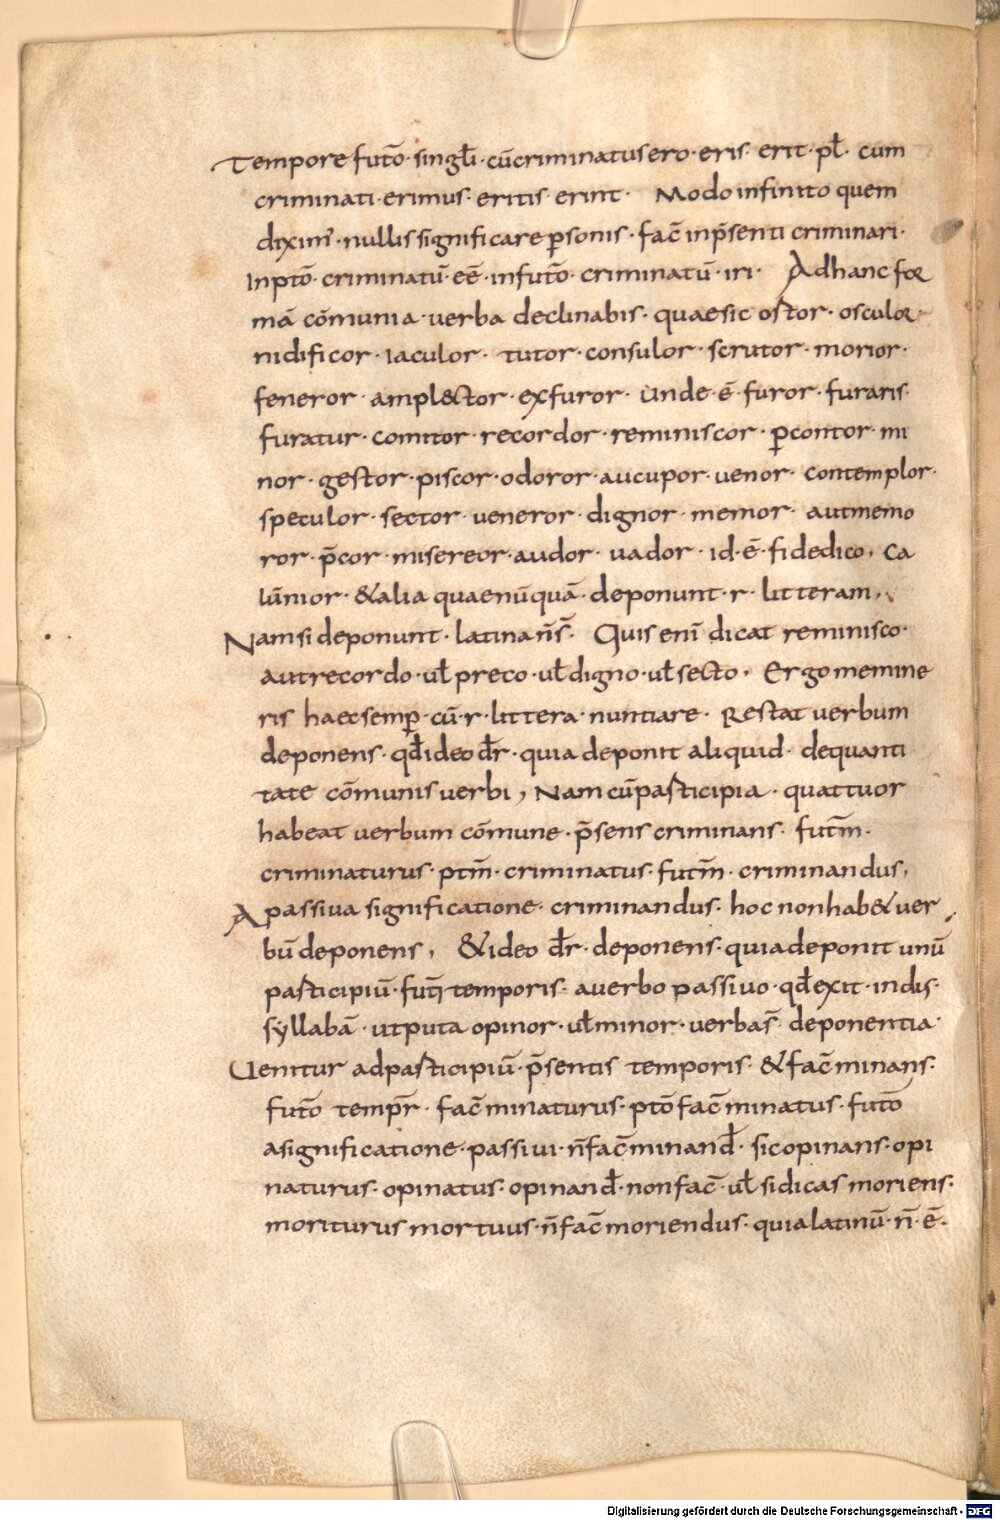 Tempore futō · singł̄i · cū criminatus ero · eris · erit · pł · cum
criminati · erimus · eritis · erint · Modo infinito quem
diximꝰ · nullis significare ꝑsonis · fac̄ in p̄senti criminari ·
In ptō · criminatū · eē · in futō · criminatū · iri · Ad hanc for
mā cōmunia · verba declinabis · quae sic ostor · osculor ·
nidificor · iaculor · tutor · consulor · scrutor · morior ·
feneror · amplector · exfuror · unde · ē · furor · furaris ·
furatur · comitor · recordor · reminiscor · ꝑcontor · mi
nor · gestor · piscor · odoror · aucupor · uenor · contemplor ·
speculor · sector · ueneror · dignor · memor · aut memo
ror · p̄cor · misereor · audor · uador · id · ē · fide dico, Ca
lūnior · & alia quae nūquā · deponunt · r · litteram,
Nam si deponunt · latina n̄ s̄ · Quis eni dicat reminisco ·
aut recordo · ul̄ preco · ul̄ digno · ul̄ secto · Ergo memine
ris haec semꝑ · cū · r · littera · nuntiare · Restat uerbum
deponens · qđ ideo dr̄ · quia deponit aliquid · de quanti
tate cōmunis uerbi, Nam cū pasticipia · quattuor
habeat uerbum cōmune · p̄sens criminans · futm̄ ·
criminaturus · ptm̄ · criminatus · futm̄ · criminandus,
A passiua significatione · criminandus · hoc non hab& uer
bū deponens, & ideo dr̄ · deponens · quia deponit unū
pasticipiū · futi temporis · a uerbo passiuo · qđ exit · in dis ·
syllabā · utputa opinor · ul̄ minor · uerba s̄ · deponentia ·
Uenitur ad pasticipiū · p̄sentis temporis · & fac̄ minans ·
futō tempr̄ · fac̄ minaturus · ptō fac̄ minatus · futō
a significatione · passiui · n̄ fac̄ minanđ · sic opinans · opi
naturus · opinatus · opinanđ · non fac̄ · ul̄ si dicas moriens ·
moriturus mortuus · n̄ fac̄ moriendus · quia latinū · n̄ · ē ·
Digitalisierung gefördert durch die Deutsche Forschungsgemeinschaft - DFG